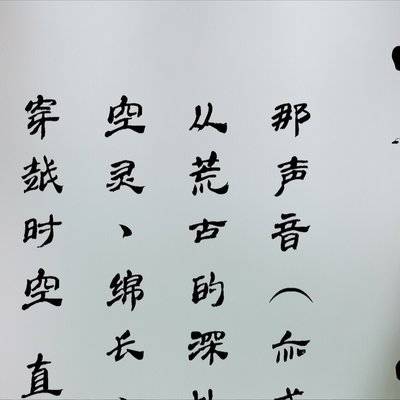 那声音（
从荒古的深
空灵、绵长、
穿越时空 直